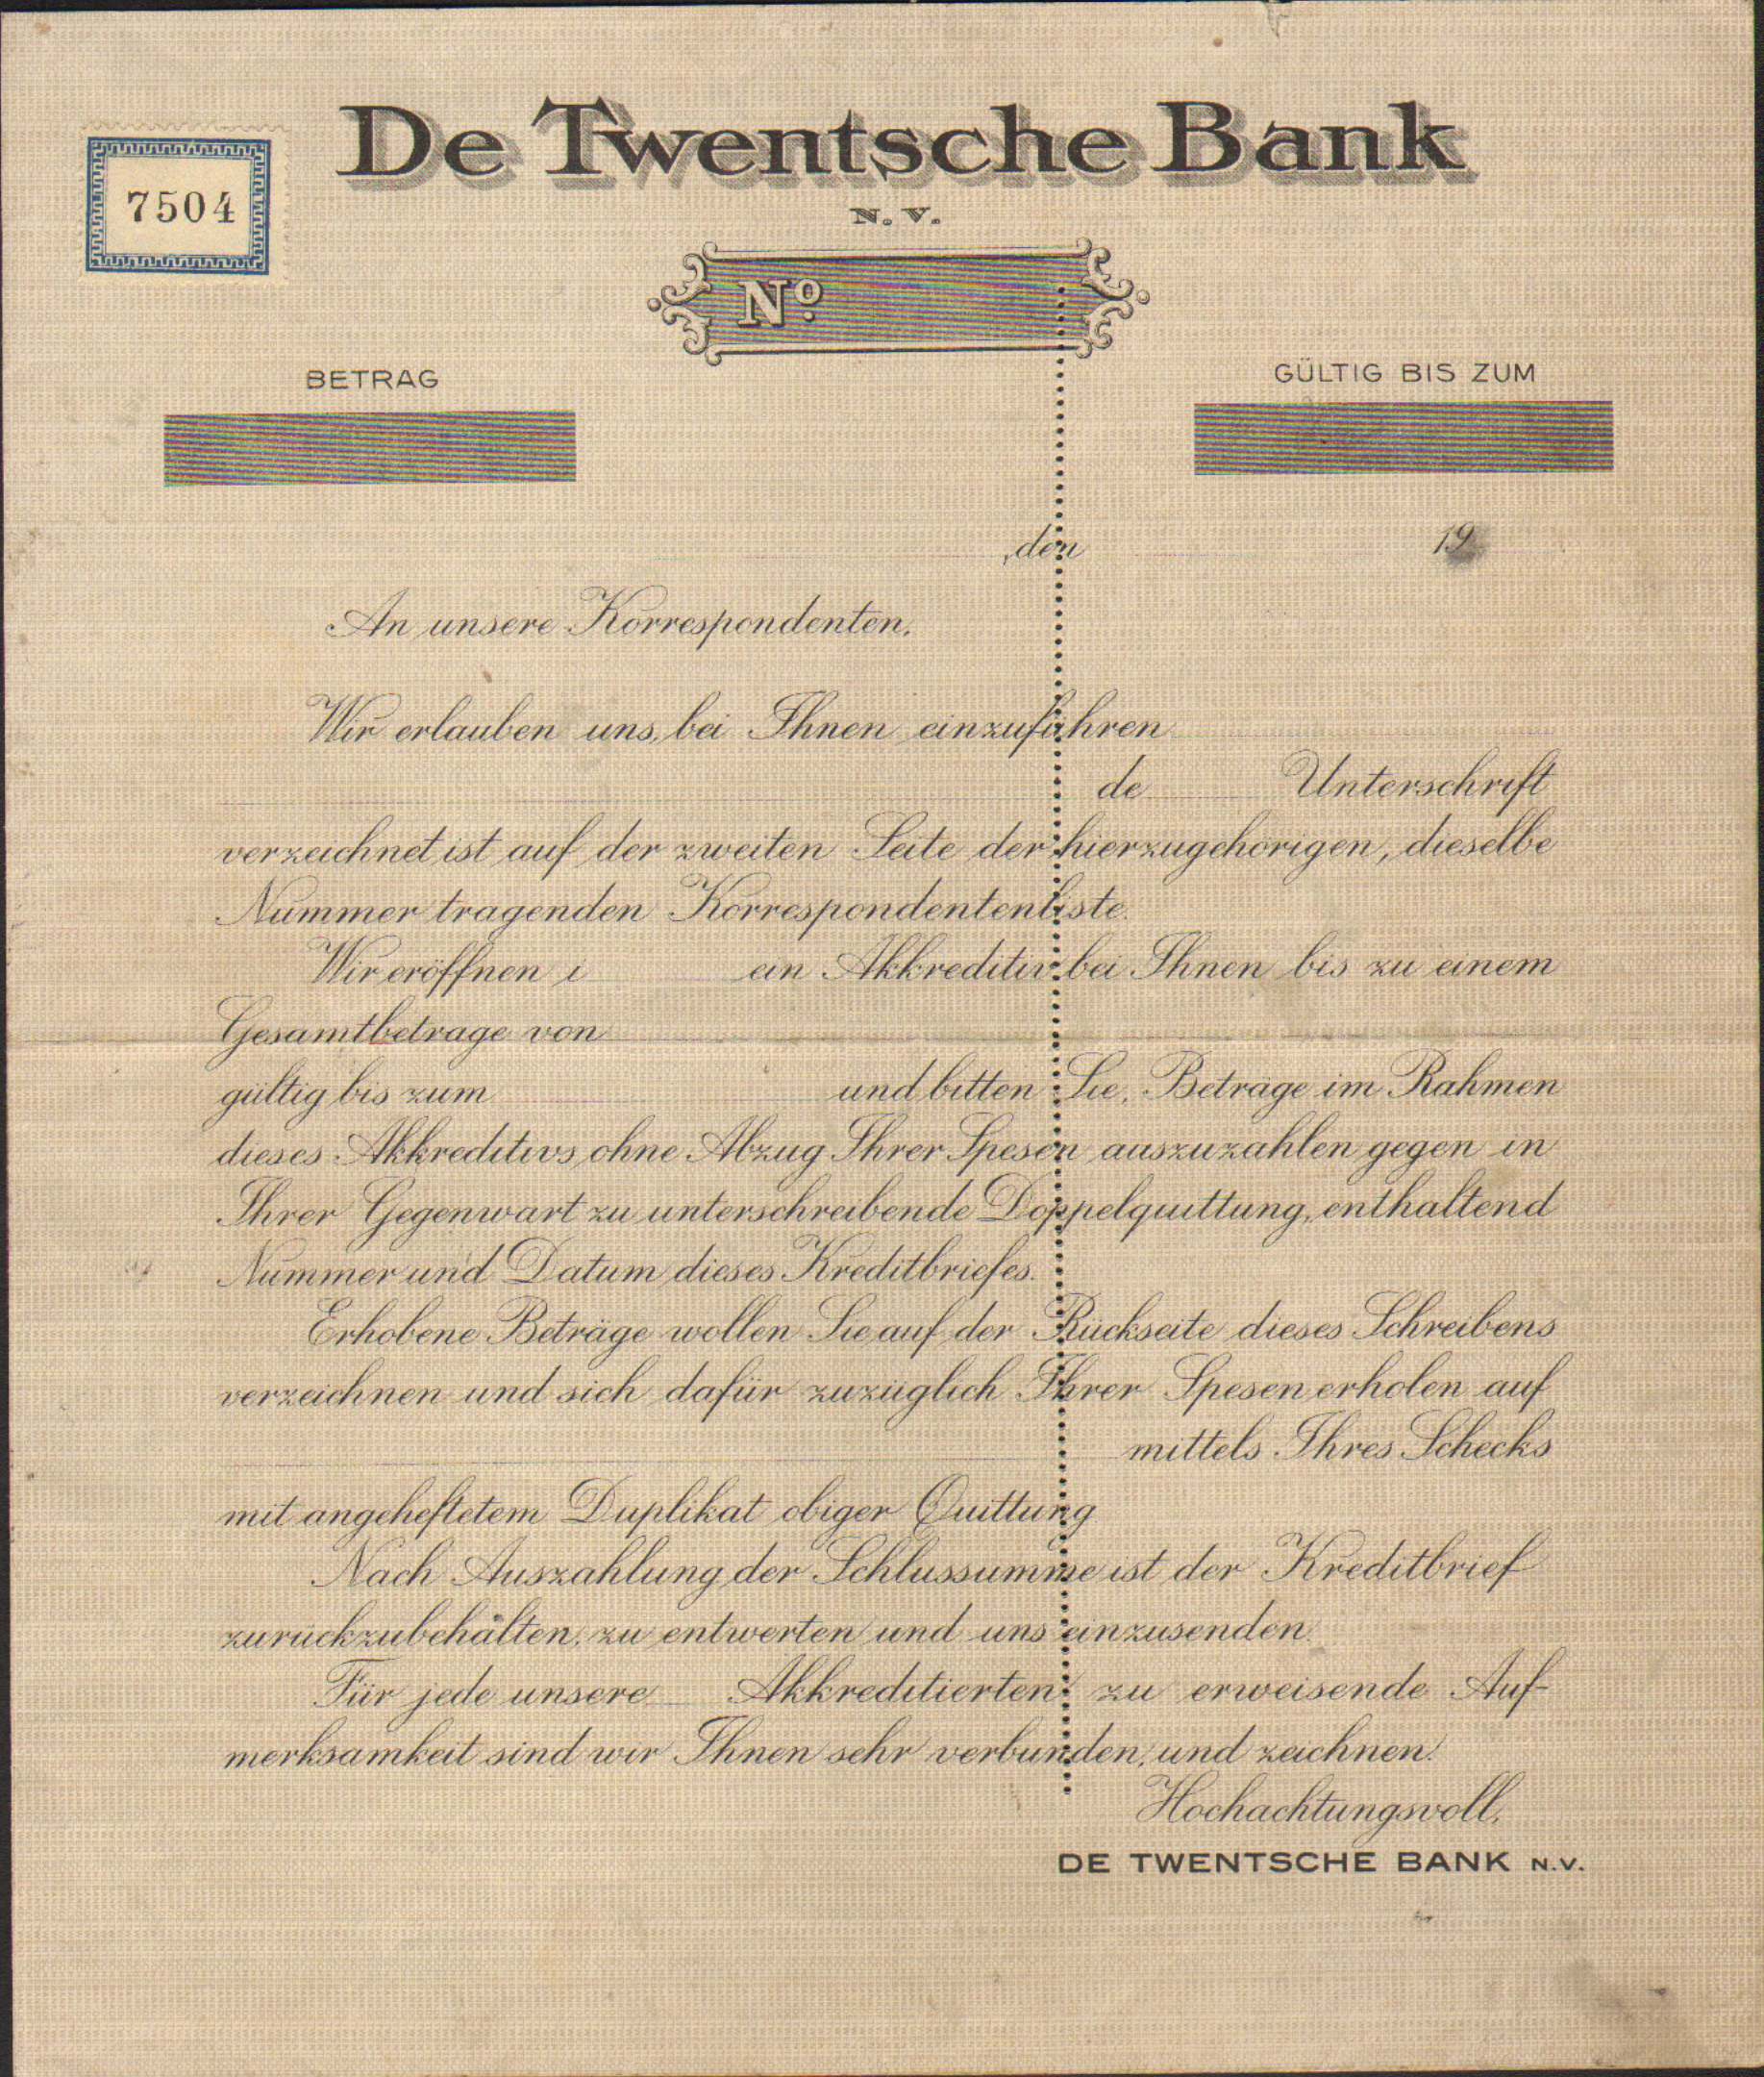 De Twentsche Bank
N. V.
7504
Nº
BETRAG
GÜLTIG BIS ZUM
, den 19
An unsere Korrespondenten.
Wir erlauben uns, bei Ihnen einzuführen
de Unterschrift
verzeichnet ist auf der zweiten Seite der hierzugehörigen, dieselbe
Nummer tragenden Korrespondentenliste.
Wir eröffnen i ein Akkreditiv bei Ihnen bis zu einem
Gesamtbetrage von
gültig bis zum und bitten Sie, Beträge im Rahmen
dieses Akkreditivs ohne Abzug Ihrer Spesen auszuzahlen gegen in
Ihrer Gegenwart zu unterschreibende Doppelquittung, enthaltend
Nummer und Datum dieses Kreditbriefes.
Erhobene Beträge wollen Sie auf der Rückseite dieses Schreibens
verzeichnen und sich dafür zuzüglich Ihrer Spesen erholen auf
mittels Ihres Schecks
mit angeheftetem Duplikat obiger Quittung
Nach Auszahlung der Schlussumme ist der Kreditbrief
zurückzubehälten, zu entwerten und uns einzusenden.
Für jede unsere Akkreditierten zu erweisende Auf-
merksamkeit sind wir Ihnen sehr verbunden, und zeichnen.
Hochachtungsvoll,
DE TWENTSCHE BANK N.V.